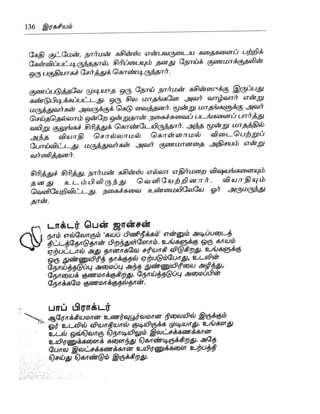 136 இரகசியம்
கேதி குட்மேன், நார்மன் கசின்ஸ் என்பவருடைய கதைகளைப் பற்றிக்
கேள்விப்பட்டிருந்ததால், சிரிப்பையும் தனது நோய்க் குணமாக்குதலின்
ஒரு பகுதியாகச் சேர்த்துக் கொண்டிருந்தார்.
குணப்படுத்தவே முடியாத ஒரு நோய் நார்மன் கசின்ஸுக்கு இருப்பது
கண்டுபிடிக்கப்பட்டது. ஒரு சில மாதங்களே அவர் வாழ்வார் என்று
மருத்துவர்கள் அவருக்குக் கெடு வைத்தனர். மூன்று மாதங்களுக்கு அவர்
செய்ததெல்லாம் ஒன்றே ஒன்றுதான். நகைச்சுவைப் படங்களைப் பார்த்து
வயிறு குலுங்கச் சிரித்துக் கொண்டேயிருந்தார். அந்த மூன்று மாதத்தில்
அந்த வியாதி சொல்லாமல் கொள்ளாமல் விடைபெற்றுப்
போய்விட்டது. மருத்துவர்கள் அவர் குணமானதை அதிசயம் என்று
வர்ணித்தனர்.
சிரித்துச் சிரித்து, நார்மன் கசின்ஸ் எல்லா எதிர்மறை விஷயங்களையும்
தனது உடம்பிலிருந்து வெளியேற்றினார். வியாதியும்
வெளியேறிவிட்டது. நகைச்சுவை உண்மையிலேயே ஓர் அருமருந்து
தான்.
டாக்டர் பென் ஜான்சன்
நாம் எல்லோரும் 'சுயப் பிணிநீக்கம்' என்னும் அடிப்படைத்
திட்டத்தோடுதான் பிறந்துள்ளோம். உங்களுக்கு ஒரு காயம்
ஏற்பட்டால் அது தானாகவே சரியாகி விடுகிறது. உங்களுக்கு
ஒரு நுண்ணுயிரித் தாக்குதல் ஏற்படும்போது, உடலின்
நோய்த்தடுப்பு அமைப்பு அந்த நுண்ணுயிரியை அழித்து,
நோயைக் குணமாக்குகிறது. நோய்த்தடுப்பு அமைப்பின்
நோக்கமே குணமாக்குதல்தான்.
பாப் பிராக்டர்
ஆரோக்கியமான உணர்வுபூர்வமான நிலையில் இருக்கும்
ஓர் உடலில் வியாதியால் குடியிருக்க முடியாது. உங்களது
உடல் ஒவ்வொரு நொடியிலும் இலட்சக்கணக்கான
உயிரணுக்களைக் களைந்து கொண்டிருக்கிறது. அதே
போல இலட்சக்கணக்கான உயிரணுக்களை உற்பத்தி
செய்து கொண்டும் இருக்கிறது.